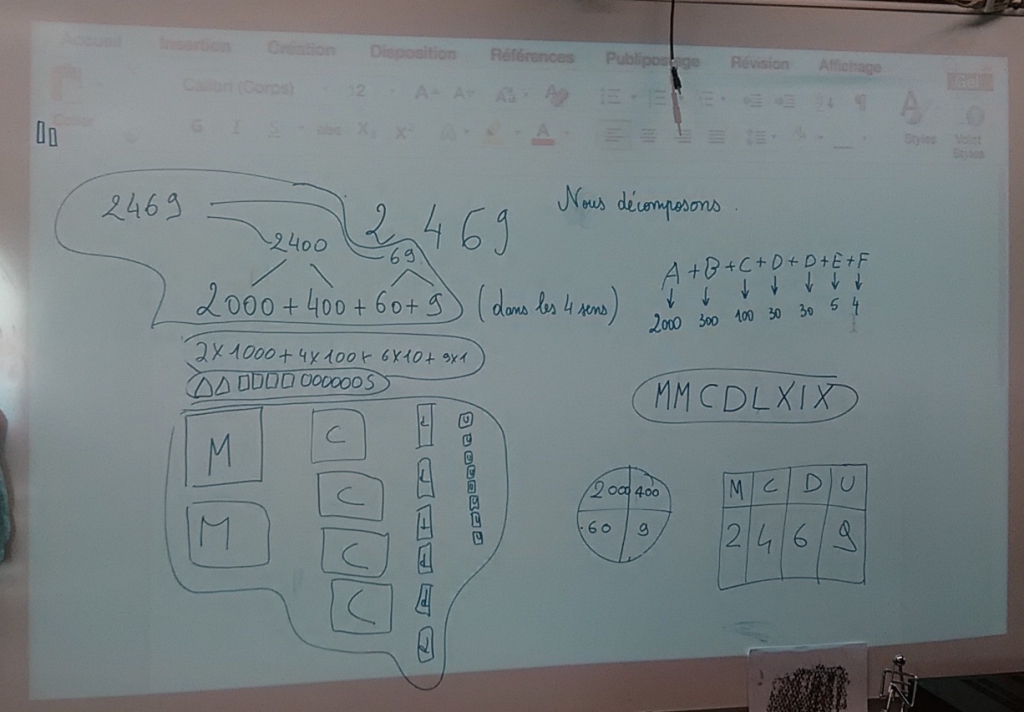 Accueil Insertion Création Disposition Références Publipostage Révision Affichage
Calibri (Corps) 12
G I S abc X₂ X²
Styles Volet Styles
2469
2400
69
2000+400+60+9 (dans les 4 sens)
2×1000+4×100+6×10+9×1
2 4 6 9
Nous décomposons.
A+B+C+D+D+E+F
2000 300 100 30 30 5 4
MMCDLXIX
M C
M C
C
C
2000 400
60 9
M C D U
2 4 6 9